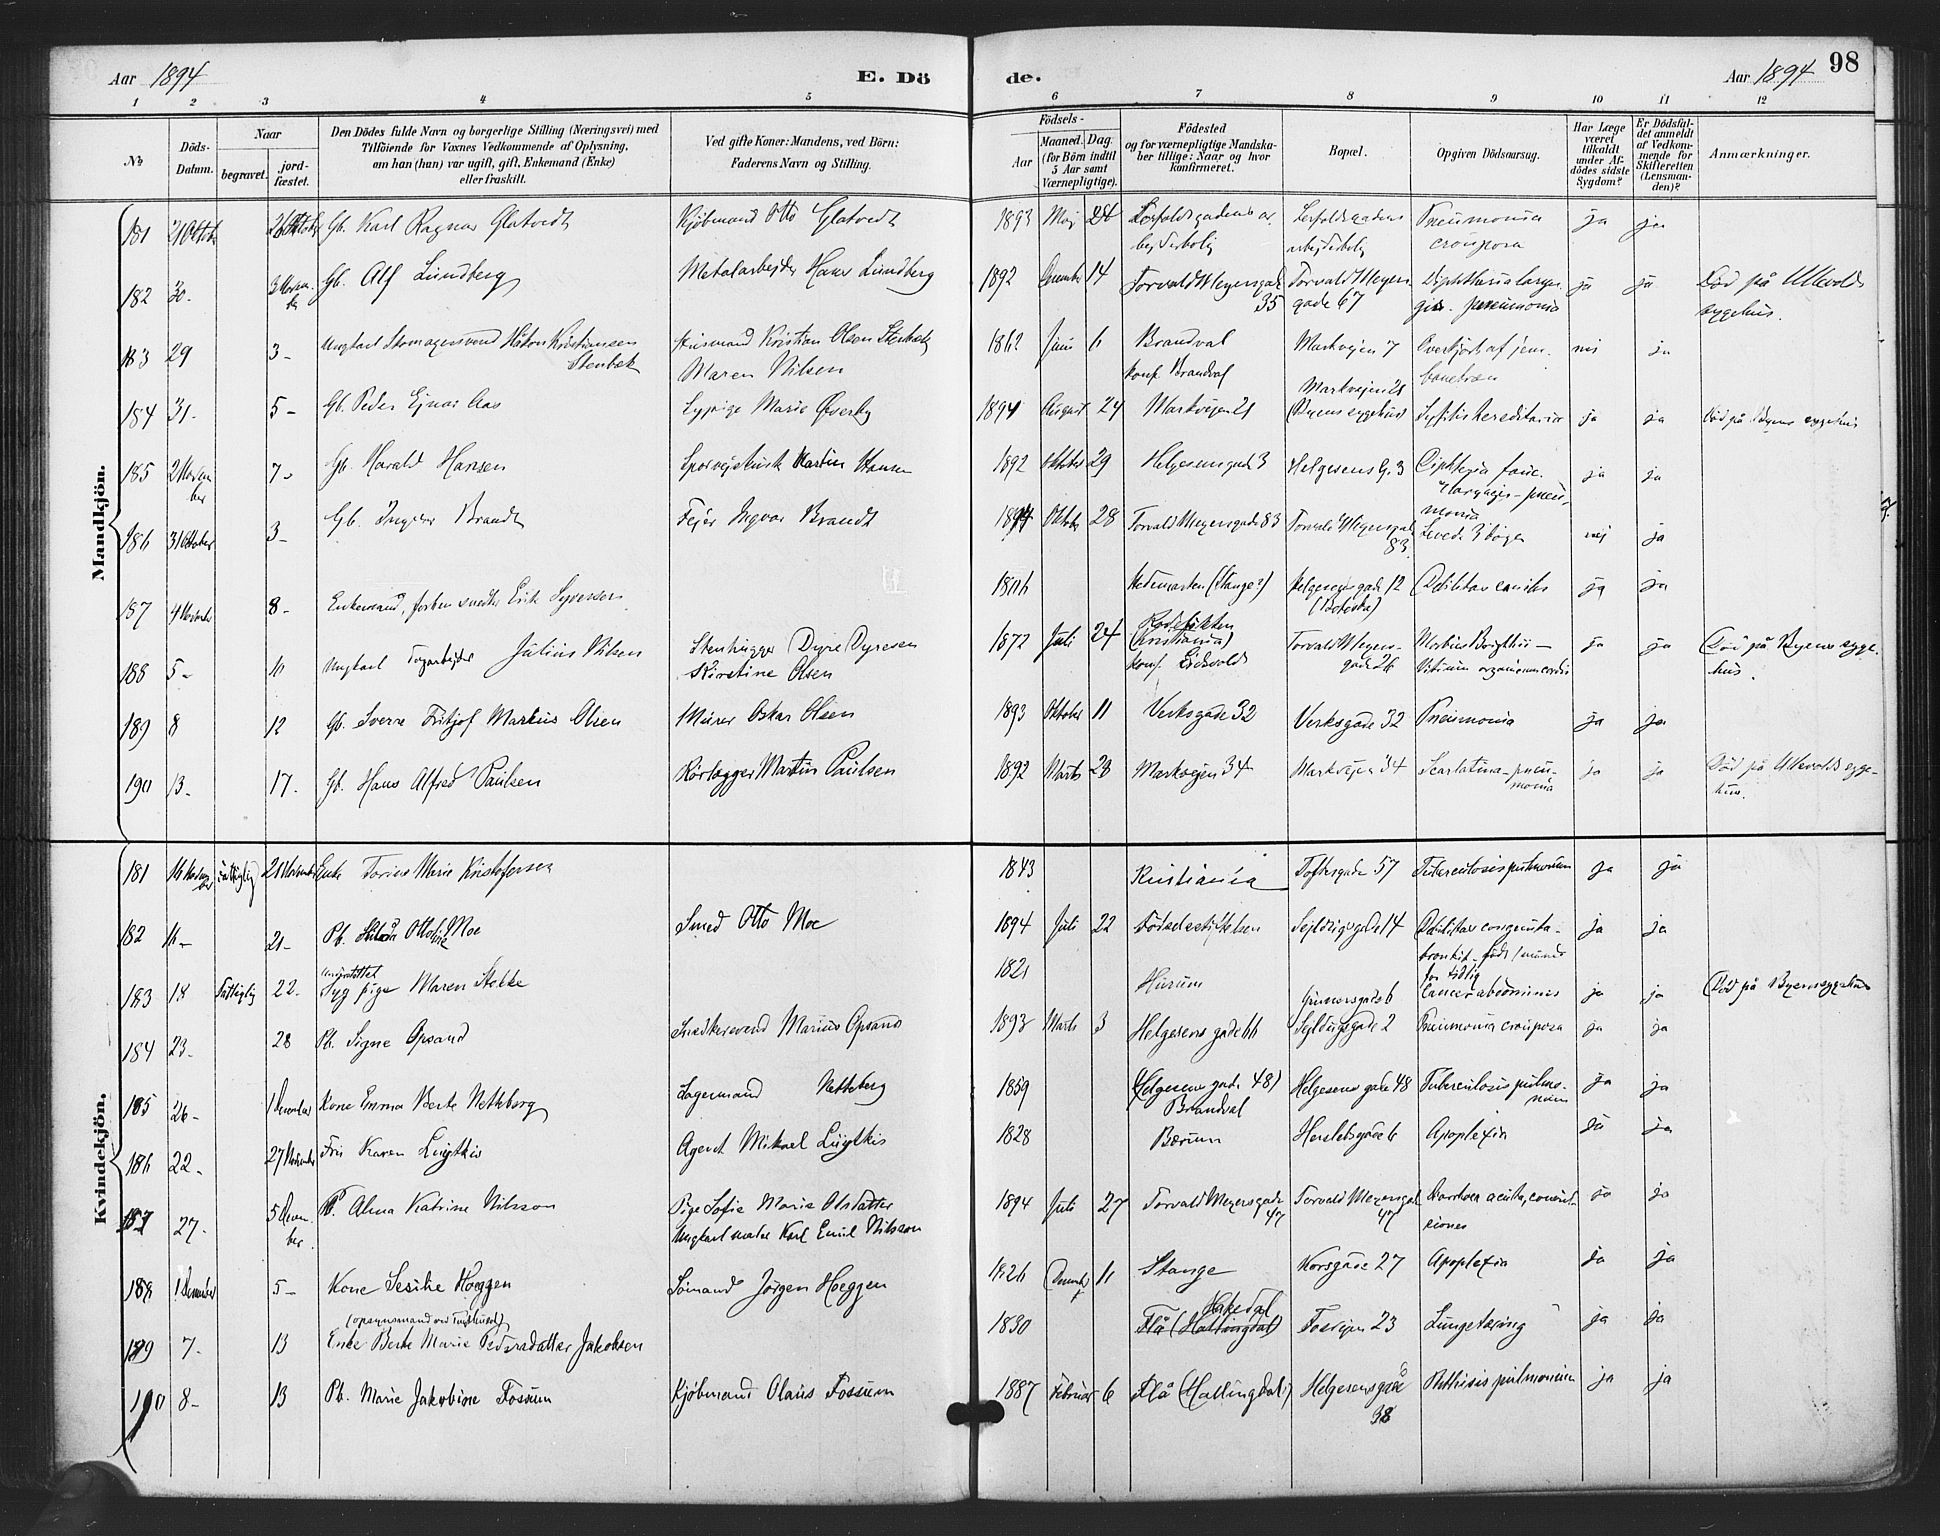 Aar 1894 E. Dö de. Aar 1894 98
1 2 3 4 5 6 7 8 9 10 11 12
No
Döds-Datum.
Naar begravet. jord-fæstet.
Den Dödes fulde Navn og borgerlige Stilling (Næringsvei) med
Tilföiende for Voxnes Vedkommende af Oplysning,
om han (hun) var ugift, gift, Enkemand (Enke)
eller fraskilt.
Ved gifte Koner: Mandens, ved Börn:
Faderens Navn og Stilling.
Födsels-
Aar Maaned. Dag
(for Börn indtil
5 Aar samt
Værnepligtige).
Födested
og for værnepligtige Mandska-
ber tillige: Naar og hvor
konfirmeret.
Bopæl.
Opgiven Dödsaarsag.
Har Læge
været
tilkaldt
under Af-
dödes sidste
Sygdom?
Er Dödsfal-
det anmeldt
af Vedkom-
mende for
Skifteretten
(Lensman-
den)?
Anmærkninger.
Mandkjön.
181 Gb. Karl Ragnar Glatvedt Kjöbmand Otto Glatvedt 1893 Maj 24 Pneumonia crouposa ja ja
182 30. Gb. Alf Lundberg Metalarbejder Hans Lundberg 1892 14 Torvald Meyersgade 35 Torvald Meyers gade 67 pneumonia ja ja Död på Ullevold sygehus.
183 29 3- Ungkarl Skomagersvend Håkon Kristiansen Stenbæk Husmand Kristian Olsen Stenbæk Maren Nilsen 1862 Juni 6 Brandval konf. Brandval Markvejen 7 Overkjört af jern-banetræn nej ja
184 31. 5- Gb. Peder Ejnar Aas Sypige Marie Överby 1894 August 24 Markvejen 21 Markvejen 21 (Byens sygehus) Syfilis hereditaria ja ja Död på Byens sygehus
185 2 November 7- Gb. Harald Hansen Martin Hansen 1892 Oktober 29 Helgesensgade 3 Helgesens G. 3 pneumonia ja ja
186 31 Oktober 3- Gb. Ingvar Brandt Fejer Ingvar Brandt 1894 Oktober 28 Torvald Meyersgade 83 Torvald Meyersgade 83. Levede 3 nej ja
187 4 November 8- Enkemand, forhen snedker Erik Syversen Hedemarken (Stange?) Helgesens gade 12 ja ja
188 5- 10 Ungkarl Julius Nilsen Stenhugger Dyre Dyresen Kirstine Olsen 1872 Juli 24 (Kristiania) konf. Eidsvold Torvald Meyers-gade 26 Morbus Brightii - Vitium organicum cordis ja ja Död på Byens syge-hus.
189 8 12 Gb. Sverre Fritjof Markus Olsen Murer Oskar Olsen 1893 Oktober 11 Verksgade 32 Verksgade 32 Pneumonia ja ja
190 13- 17. Gb. Hans Alfred Paulsen Rörlægger Martin Paulsen 1892 Marts 23 Markvejen 34 Markvejen 34 Scarlatina-pneumonia ja ja Död på Ullevolds syge-hus.
Kvindekjön.
181 16 November fattiglig 21 November Enke Marie Kristofersen 1843 Kristiania Toftesgade 57 Tuberculosis pulmonum ja ja
182 21- Pb. Hilda Ottoline Moe Smed Otto Moe 1894 Juli 22 Födselsstiftelsen Sejldugsgade 14 Debilitas congenita- bronkit- for tidlig ja ja
183 18 Fattiglig 22. Syg pige Maren Stokke 1821 Hurum Cancer abdominis ja ja Död på Byens sygehus
184 23- 28 Pb. Signe Opsand Snedkersvend Marius Opsand 1893 Marts 3 Helgesens gade 66 Sejldugsgade 2 Pneumonia crouposa ja ja
185 26- 1 December Kone Emma Berte Netteberg Lagermand Netteberg 1859 (Helgesens gade 48) Brandval Helgesens gade 48 Tuberculosis pulmonum ja ja
186 22- 27 November Fru Karen Lügtkis Agent Mikael Lügtkis 1828 Bærum Herslebsgade 6 Apoplexia ja ja
187 27- 5 December. Alma Katrine Nilsson Pige Sofie Marie Olsdatter Ungkarl Karl Emil Nilsson 1894 Juli 27 Torvald Meyersgade 47 Torvald Meyersgade 47 Diarrhoea acuta, ja ja
188 1 December 5- Kone Hoeggen Sömand Jörgen Hoeggen 1826 December 11 Stange Korsgade 27 Apoplexia ja ja
189 7- 13 Enke Berte Marie Pedersdatter Jakobsen 1830 Hakedal Flå (Hallingdal) Fossvejen 23 Lungetæring ja ja
190 8- 13 Pb. Marie Jakobine Fossum Kjöbmand Olaus Fossum 1887 Februar 6 Flå (Hallingdal) Helgesensgade 38 Phthisis pulmonum ja ja